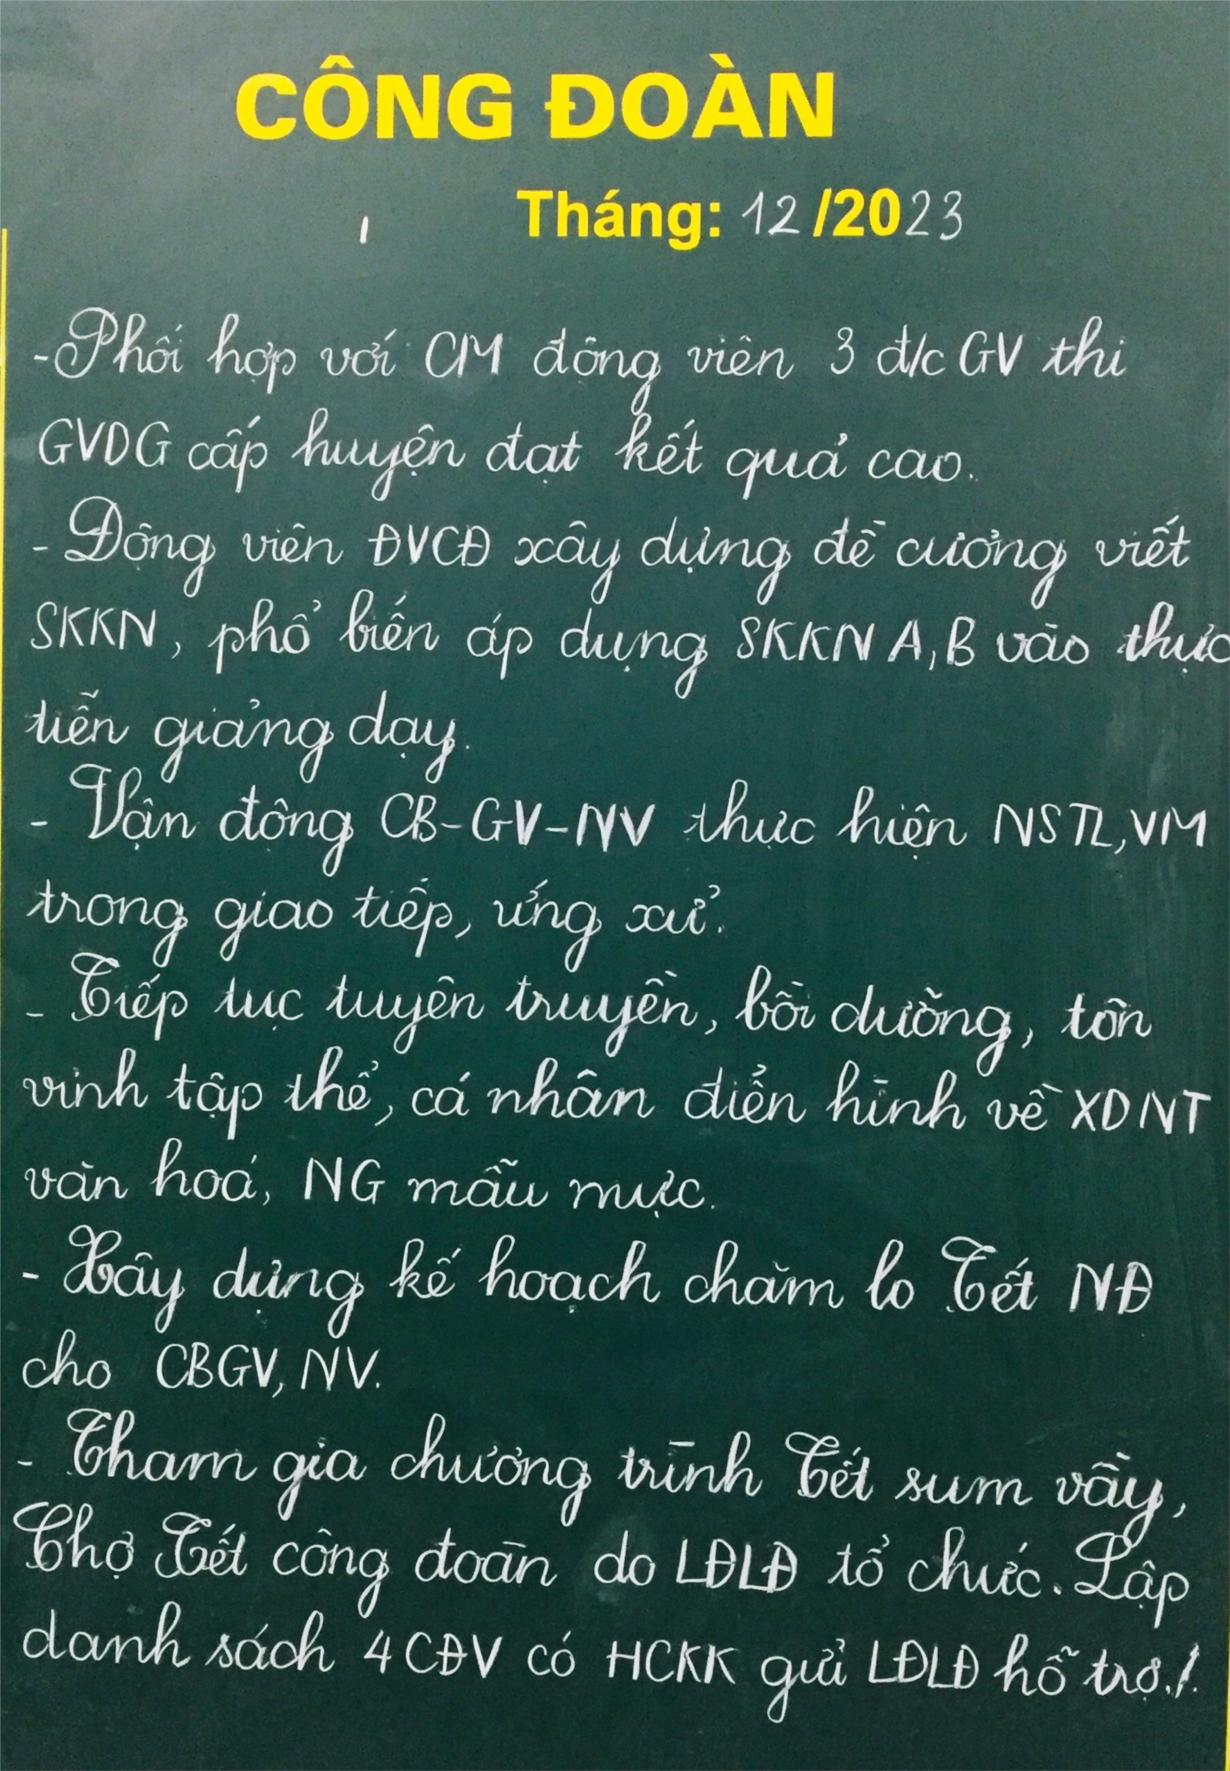 CÔNG ĐOÀN
Tháng: 12/2023
-Phối hợp với CM động viên 3 đ/c GV thi
GVDG cấp huyện đạt kết quả cao.
- Động viên ĐVCĐ xây dựng đề cương viết
SKKN, phổ biến áp dụng SKKN A,B vào thực
tiễn giảng dạy.
- Vận động CB-GV-NV thực hiện NSTL,VM
trong giao tiếp, ứng xử.
- Tiếp tục tuyên truyền, bồi dưỡng, tôn
vinh tập thể, cá nhân điển hình về XDNT
văn hoá, NG mẫu mực.
- Xây dựng kế hoạch chăm lo Tết NĐ
cho CBGV, NV.
- Tham gia chương trình Tết sum vầy,
Chợ Tết công đoàn do LĐLĐ tổ chức. Lập
danh sách 4 CĐV có HCKK gửi LĐLĐ hỗ trợ./.